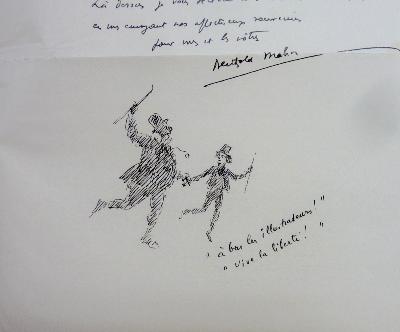 Là dessus je vous
en vous envoyant nos affectueux souvenirs
pour vous et les vôtres
Berthold Mahn
" à bas les illustrateurs ! "
" Vive la liberté ! "